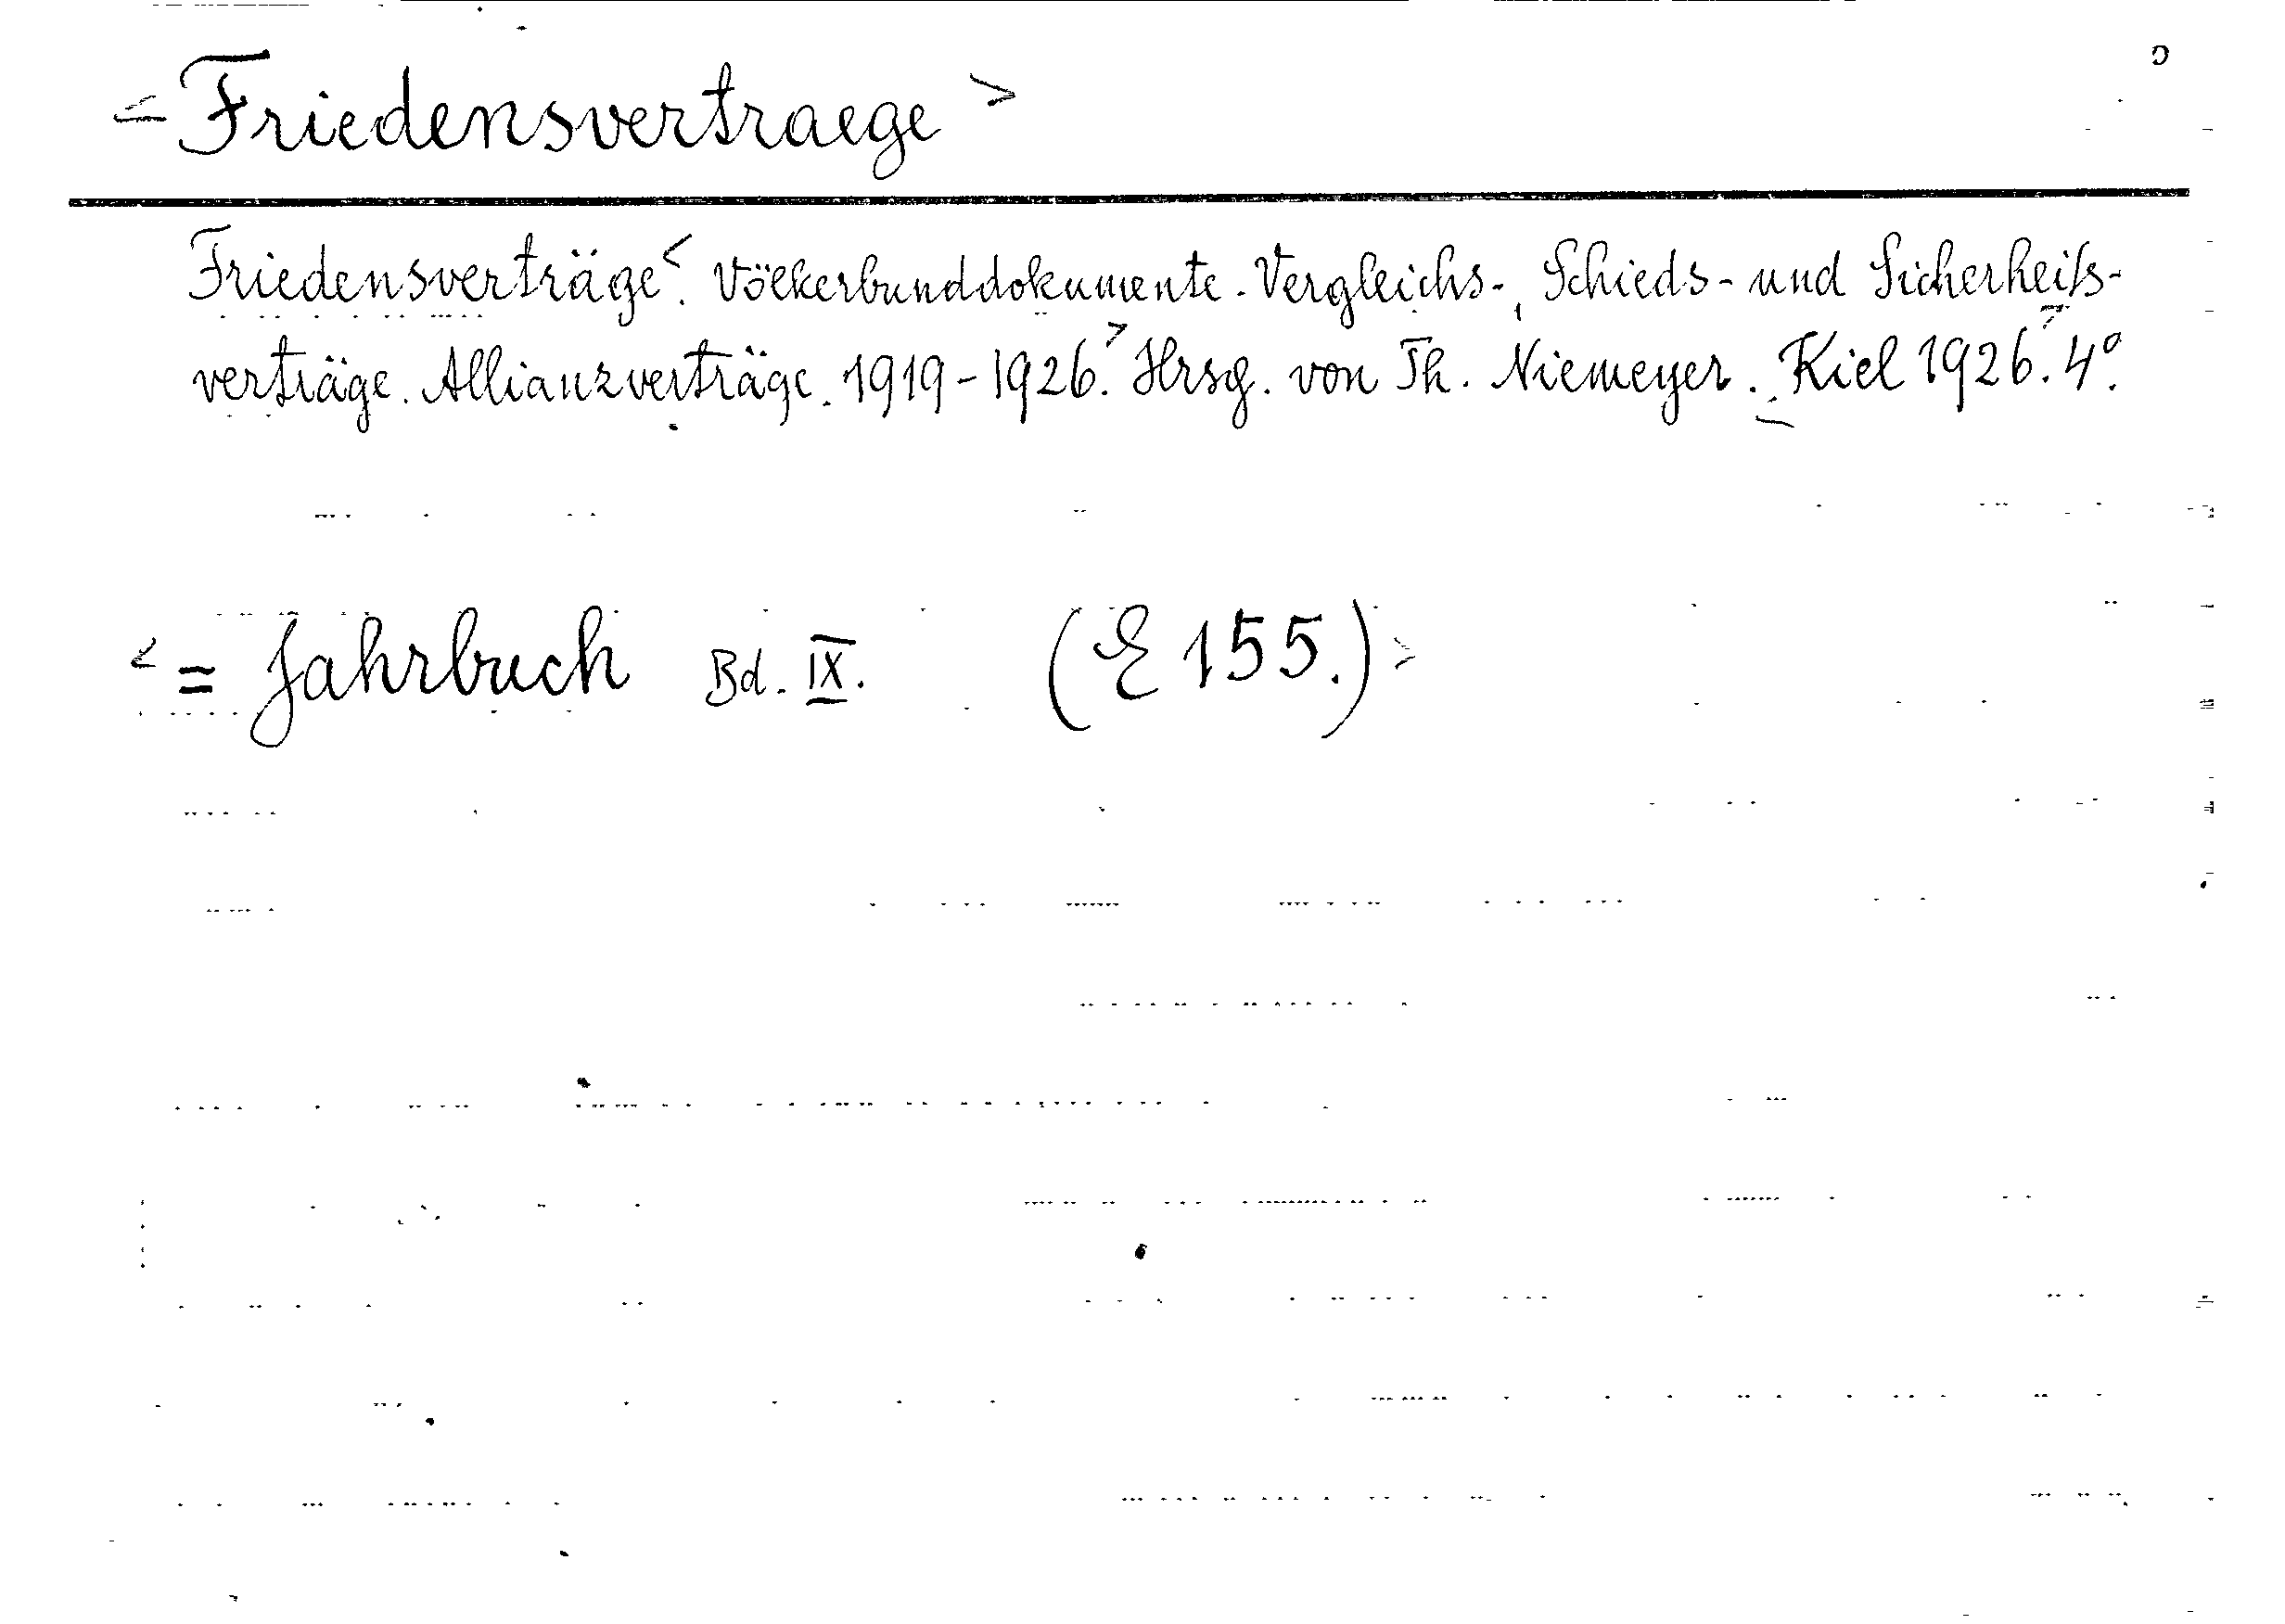 < Friedensvertraege >
Friedensverträge<. Völkerbunddokumente. Vergleichs-, Schieds- und Sicherheits-
verträge. Allianzverträge. 1919-1926.> Hrsg. von Th. Niemeyer. Kiel 1926. 4°.
< = Jahrbuch Bd. IX. (E 155.) >